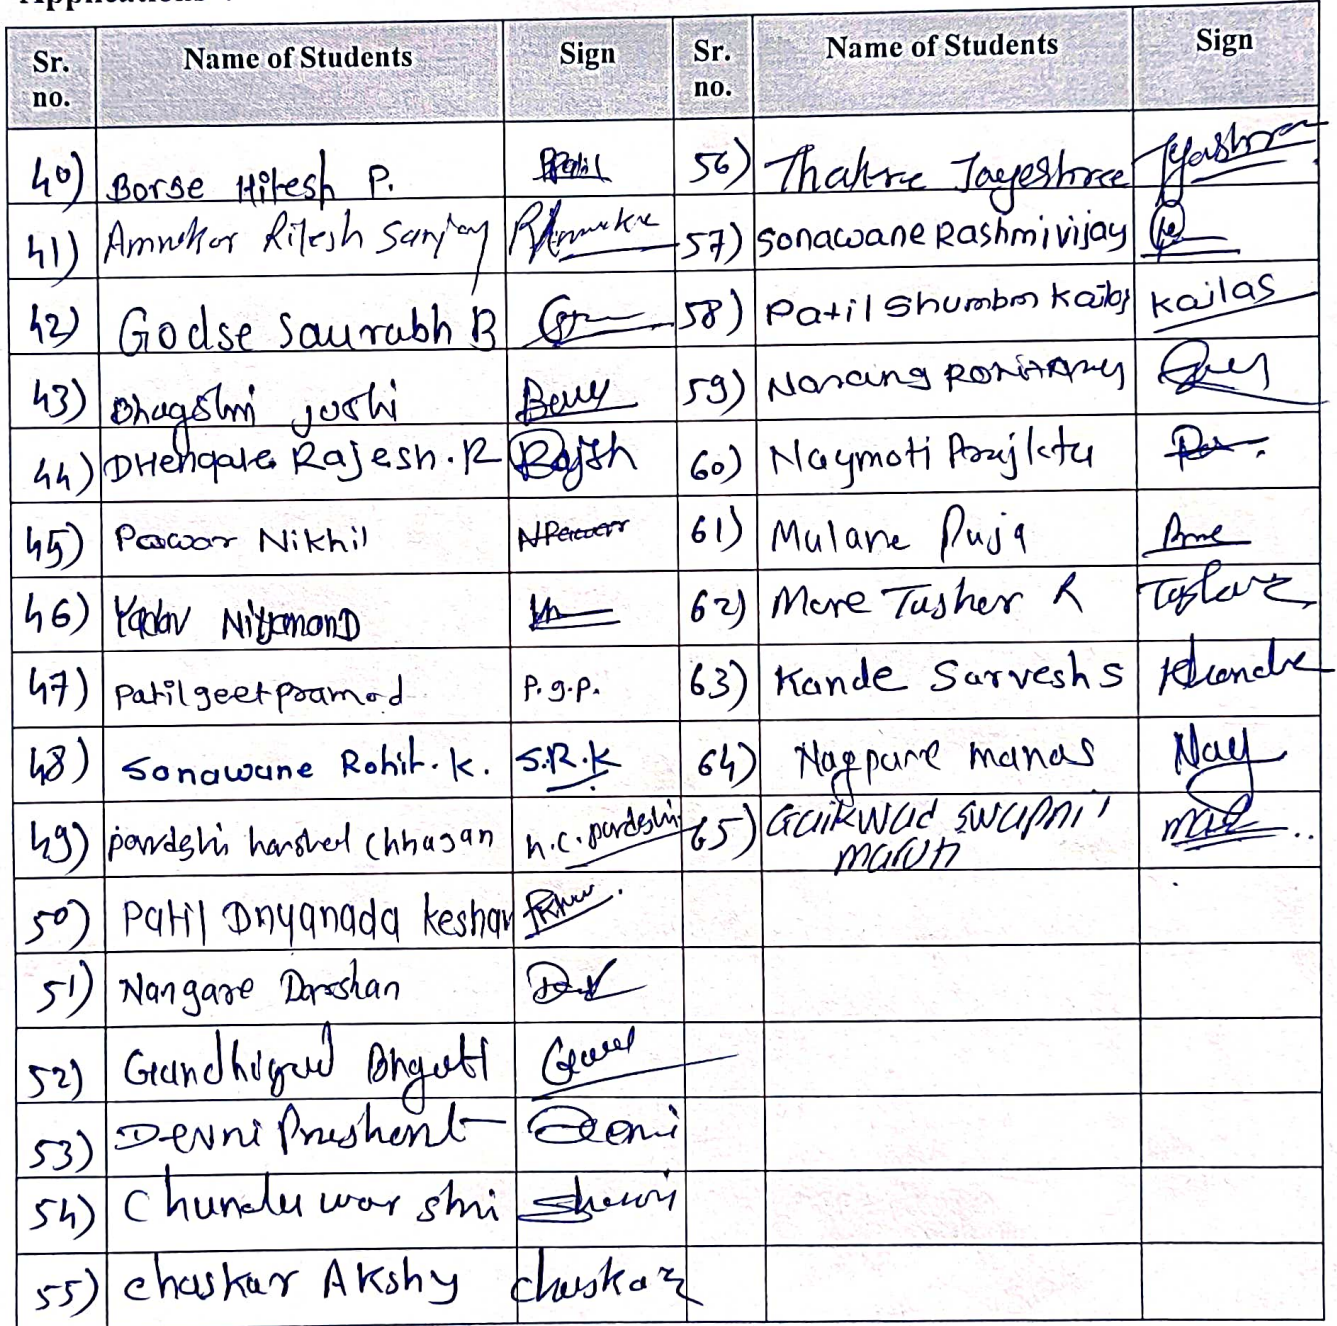 Sr. no. Name of Students Sign Sr. no. Name of Students Sign
40) Borse Hitesh P. 56) Thakre Jayeshree
41) Ritesh Sanjay 57) Sonawane Rashmi vijay
42) Godse Saurabh B 58) Patil Shumbm Kailas kailas
43) Bhagshri joshi 59) Narang
44) DHengale Rajesh.R Rajsh 60) Naymoti Prajkta
45) Pawar Nikhil NPawar 61) Mulane Puja
46) Yadav NityanonD 62) More Tusher R
47) Patil geet pramod P.g.P. 63) Kande Sarvesh S
48) Sonawane Rohit.k. S.R.K 64) Nagpure manas Nay
49) pardeshi harshel Chhagan h.c.pardeshi 65) Gaikwad swapnil
maruti
50) Patil Dnyanada keshav
51) Nangare Darshan
52)
53) Devni Prashant
54) Chundu war shri
55) chaskar Akshy chaskar